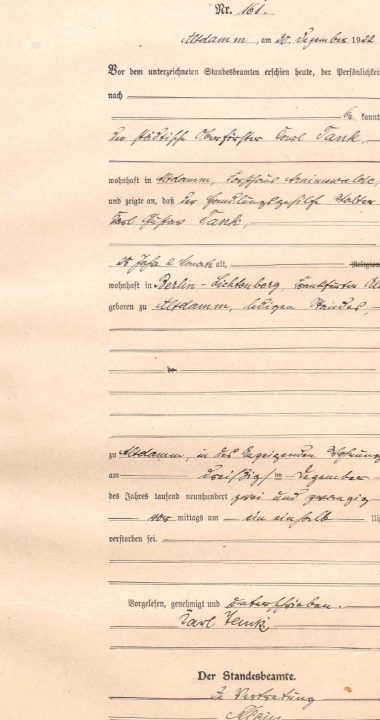 Nr. 161.
Altdamm, am 30. Dezember 1922
Vor dem unterzeichneten Standesbeamten erschien heute, der Persönlichkeit
nach
be kannt,
der städtische Oberförster Karl Tank,
wohnhaft in Altdamm, Forsthaus
und zeigte an, daß der Handlungsgehilfe Walter
Karl Gustav Tank,
30 Jahre 2 Monate alt, Religion
wohnhaft in Berlin-Lichtenberg, Frankfurter
geboren zu Altdamm, ledigen Standes,
zu Altdamm, in des Anzeigenden Wohnung
am dreißigsten Dezember
des Jahres tausend neunhundert zwei und zwanzig
vor mittags um ein einhalb
verstorben sei.
Vorgelesen, genehmigt und unterschrieben.
Karl Tank
Der Standesbeamte.
In Vertretung